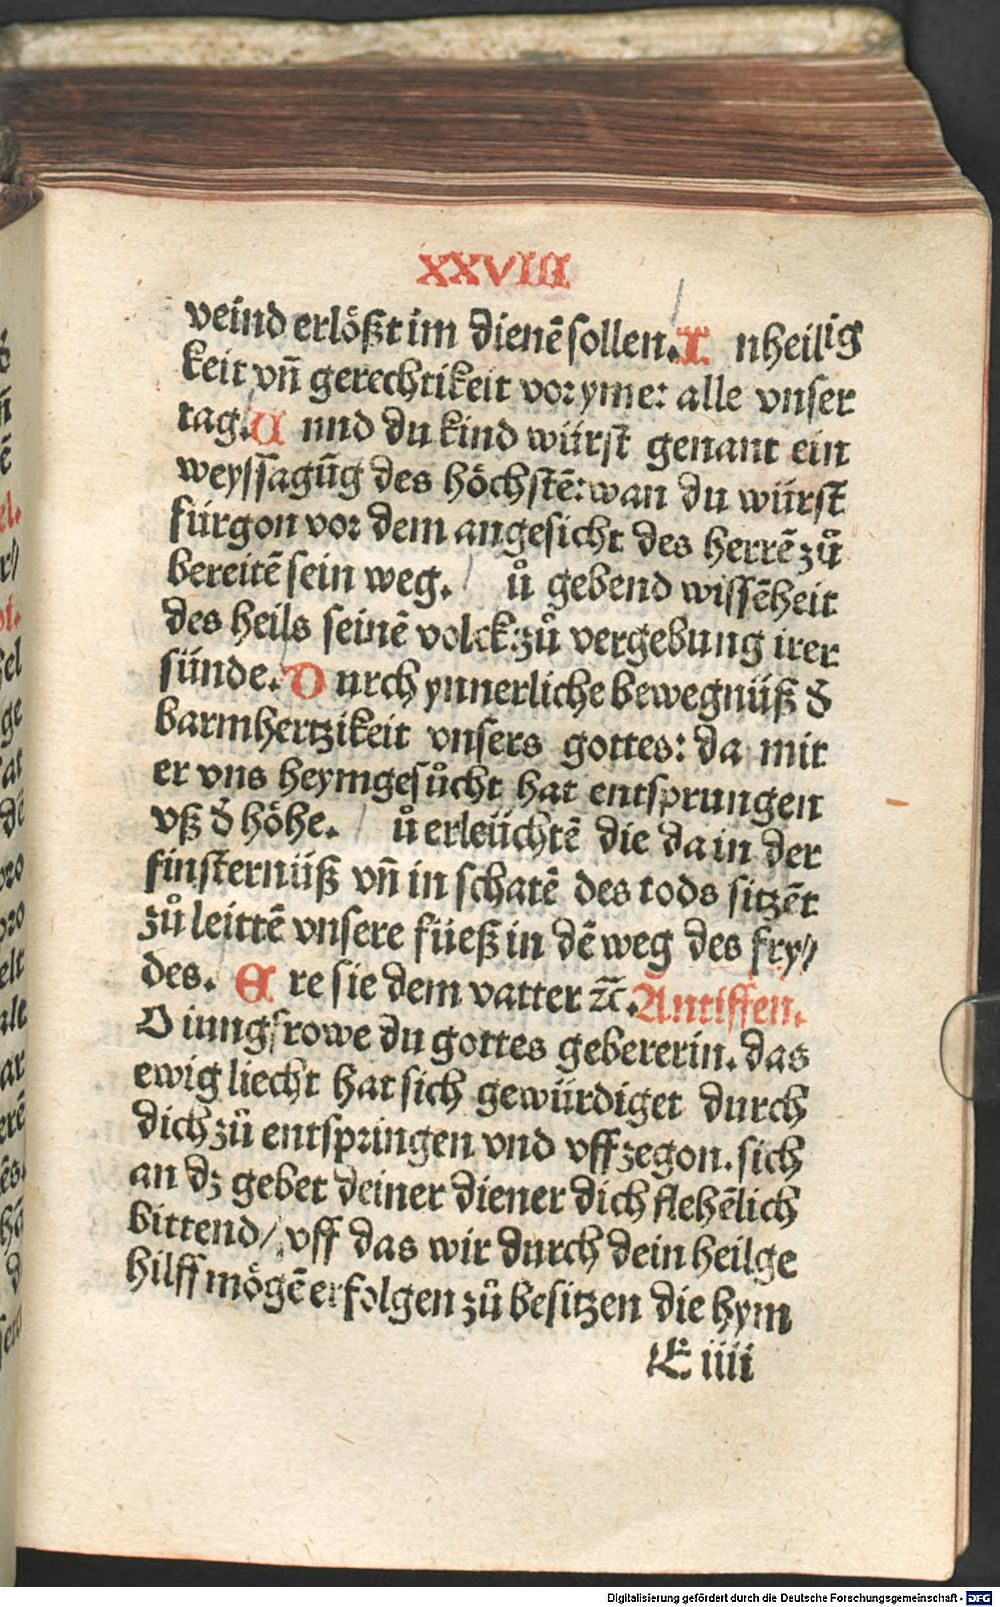 XXVIII
veind erlößt im dienē sollen. I nheilig
keit vñ gerechtikeit vor yme: alle vnser
tag. U nnd du kind würst genant ein
weyssagūg des höchstē: wan du würst
fürgon vor dem angesicht des herrē zů
bereitē sein weg. ů gebend wissēheit
des heils seinē volck: zů vergebung irer
sünde. D urch ynnerliche bewegnüß d̄
barmhertzikeit vnsers gottes: da mit
er vns heymgesůcht hat entsprungen
vß d̄ höhe. ů erleüchtē die da in der
finsternüß vñ in schatē des tods sitzēt
zů leittē vnsere füeß in dē weg des fry//
des. E re sie dem vatter ⁊c̄. Antiffen.
O iungfrowe du gottes gebererin. das
ewig liecht hat sich gewürdiget durch
dich zů entspringen vnd vff zegon. sich
an dz gebet deiner diener dich flehēlich
bittend/ vff das wir durch dein heilge
hilff mögē erfolgen zů besitzen die hym
E iiii
Digitalisierung gefördert durch die Deutsche Forschungsgemeinschaft - DFG